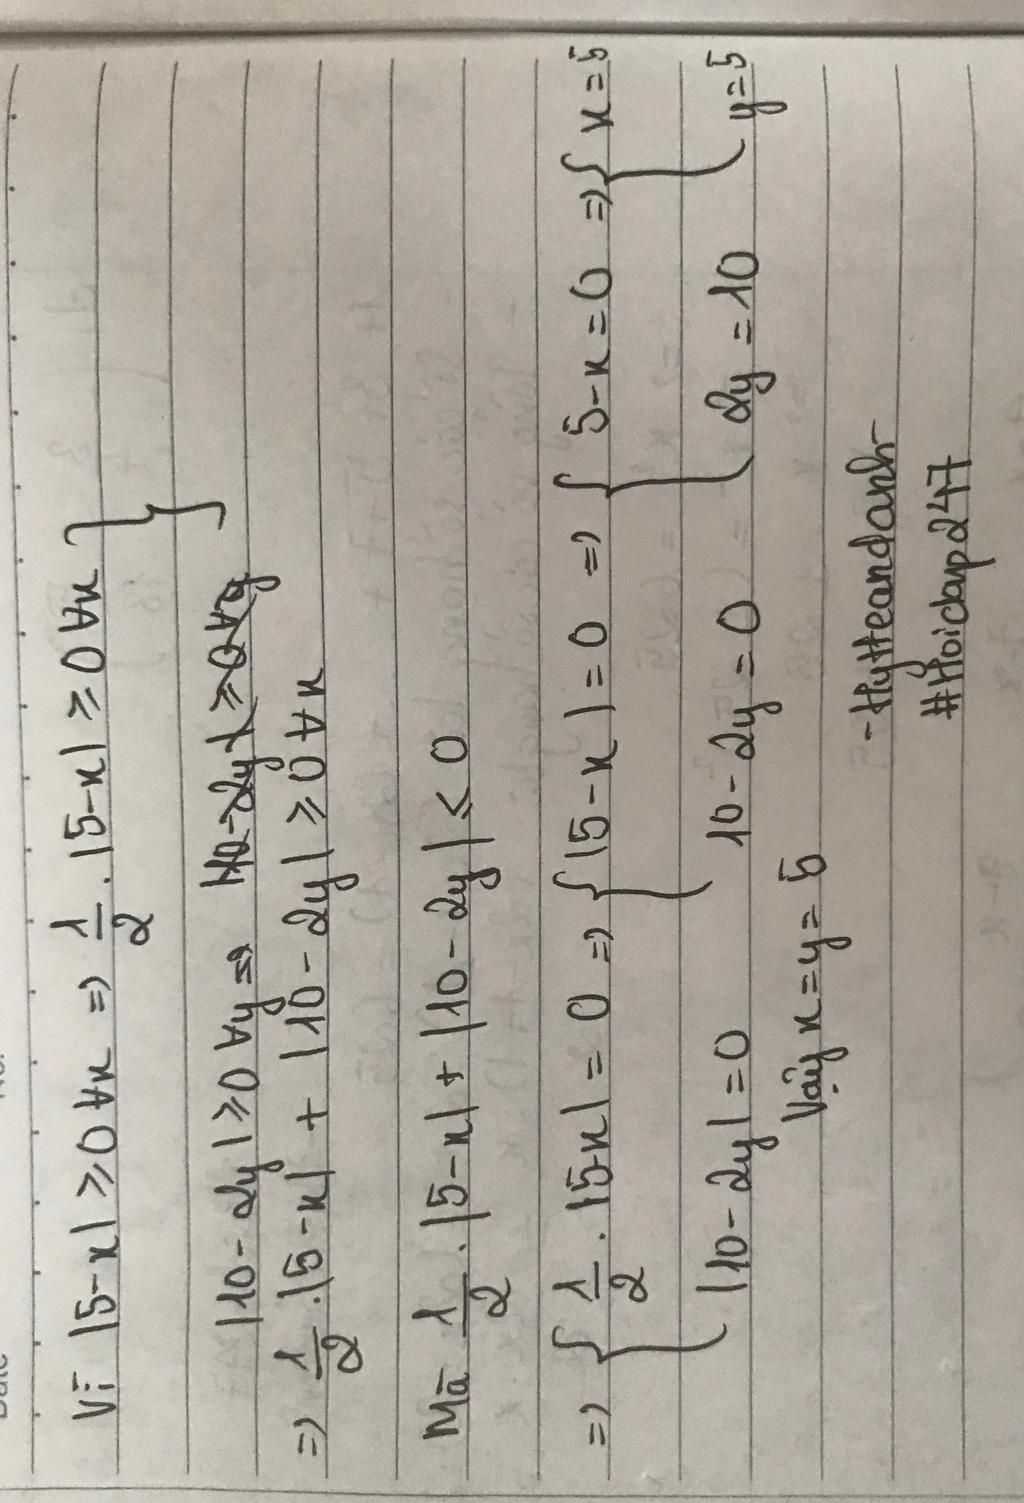 Vì |5-x| ≥ 0 ∀x => 1/2 . |5-x| ≥ 0 ∀x }
|10-2y| ≥ 0 ∀y =>
=> 1/2 . |5-x| + |10-2y| ≥ 0 ∀x
Mà 1/2 . |5-x| + |10-2y| ≤ 0
=> { 1/2 . |5-x| = 0 => { |5-x| = 0 => { 5-x = 0 => { x = 5
|10-2y| = 0 10-2y = 0 2y = 10 y = 5
Vậy x = y = 5
-Hytteandanh-
#Hoidap247